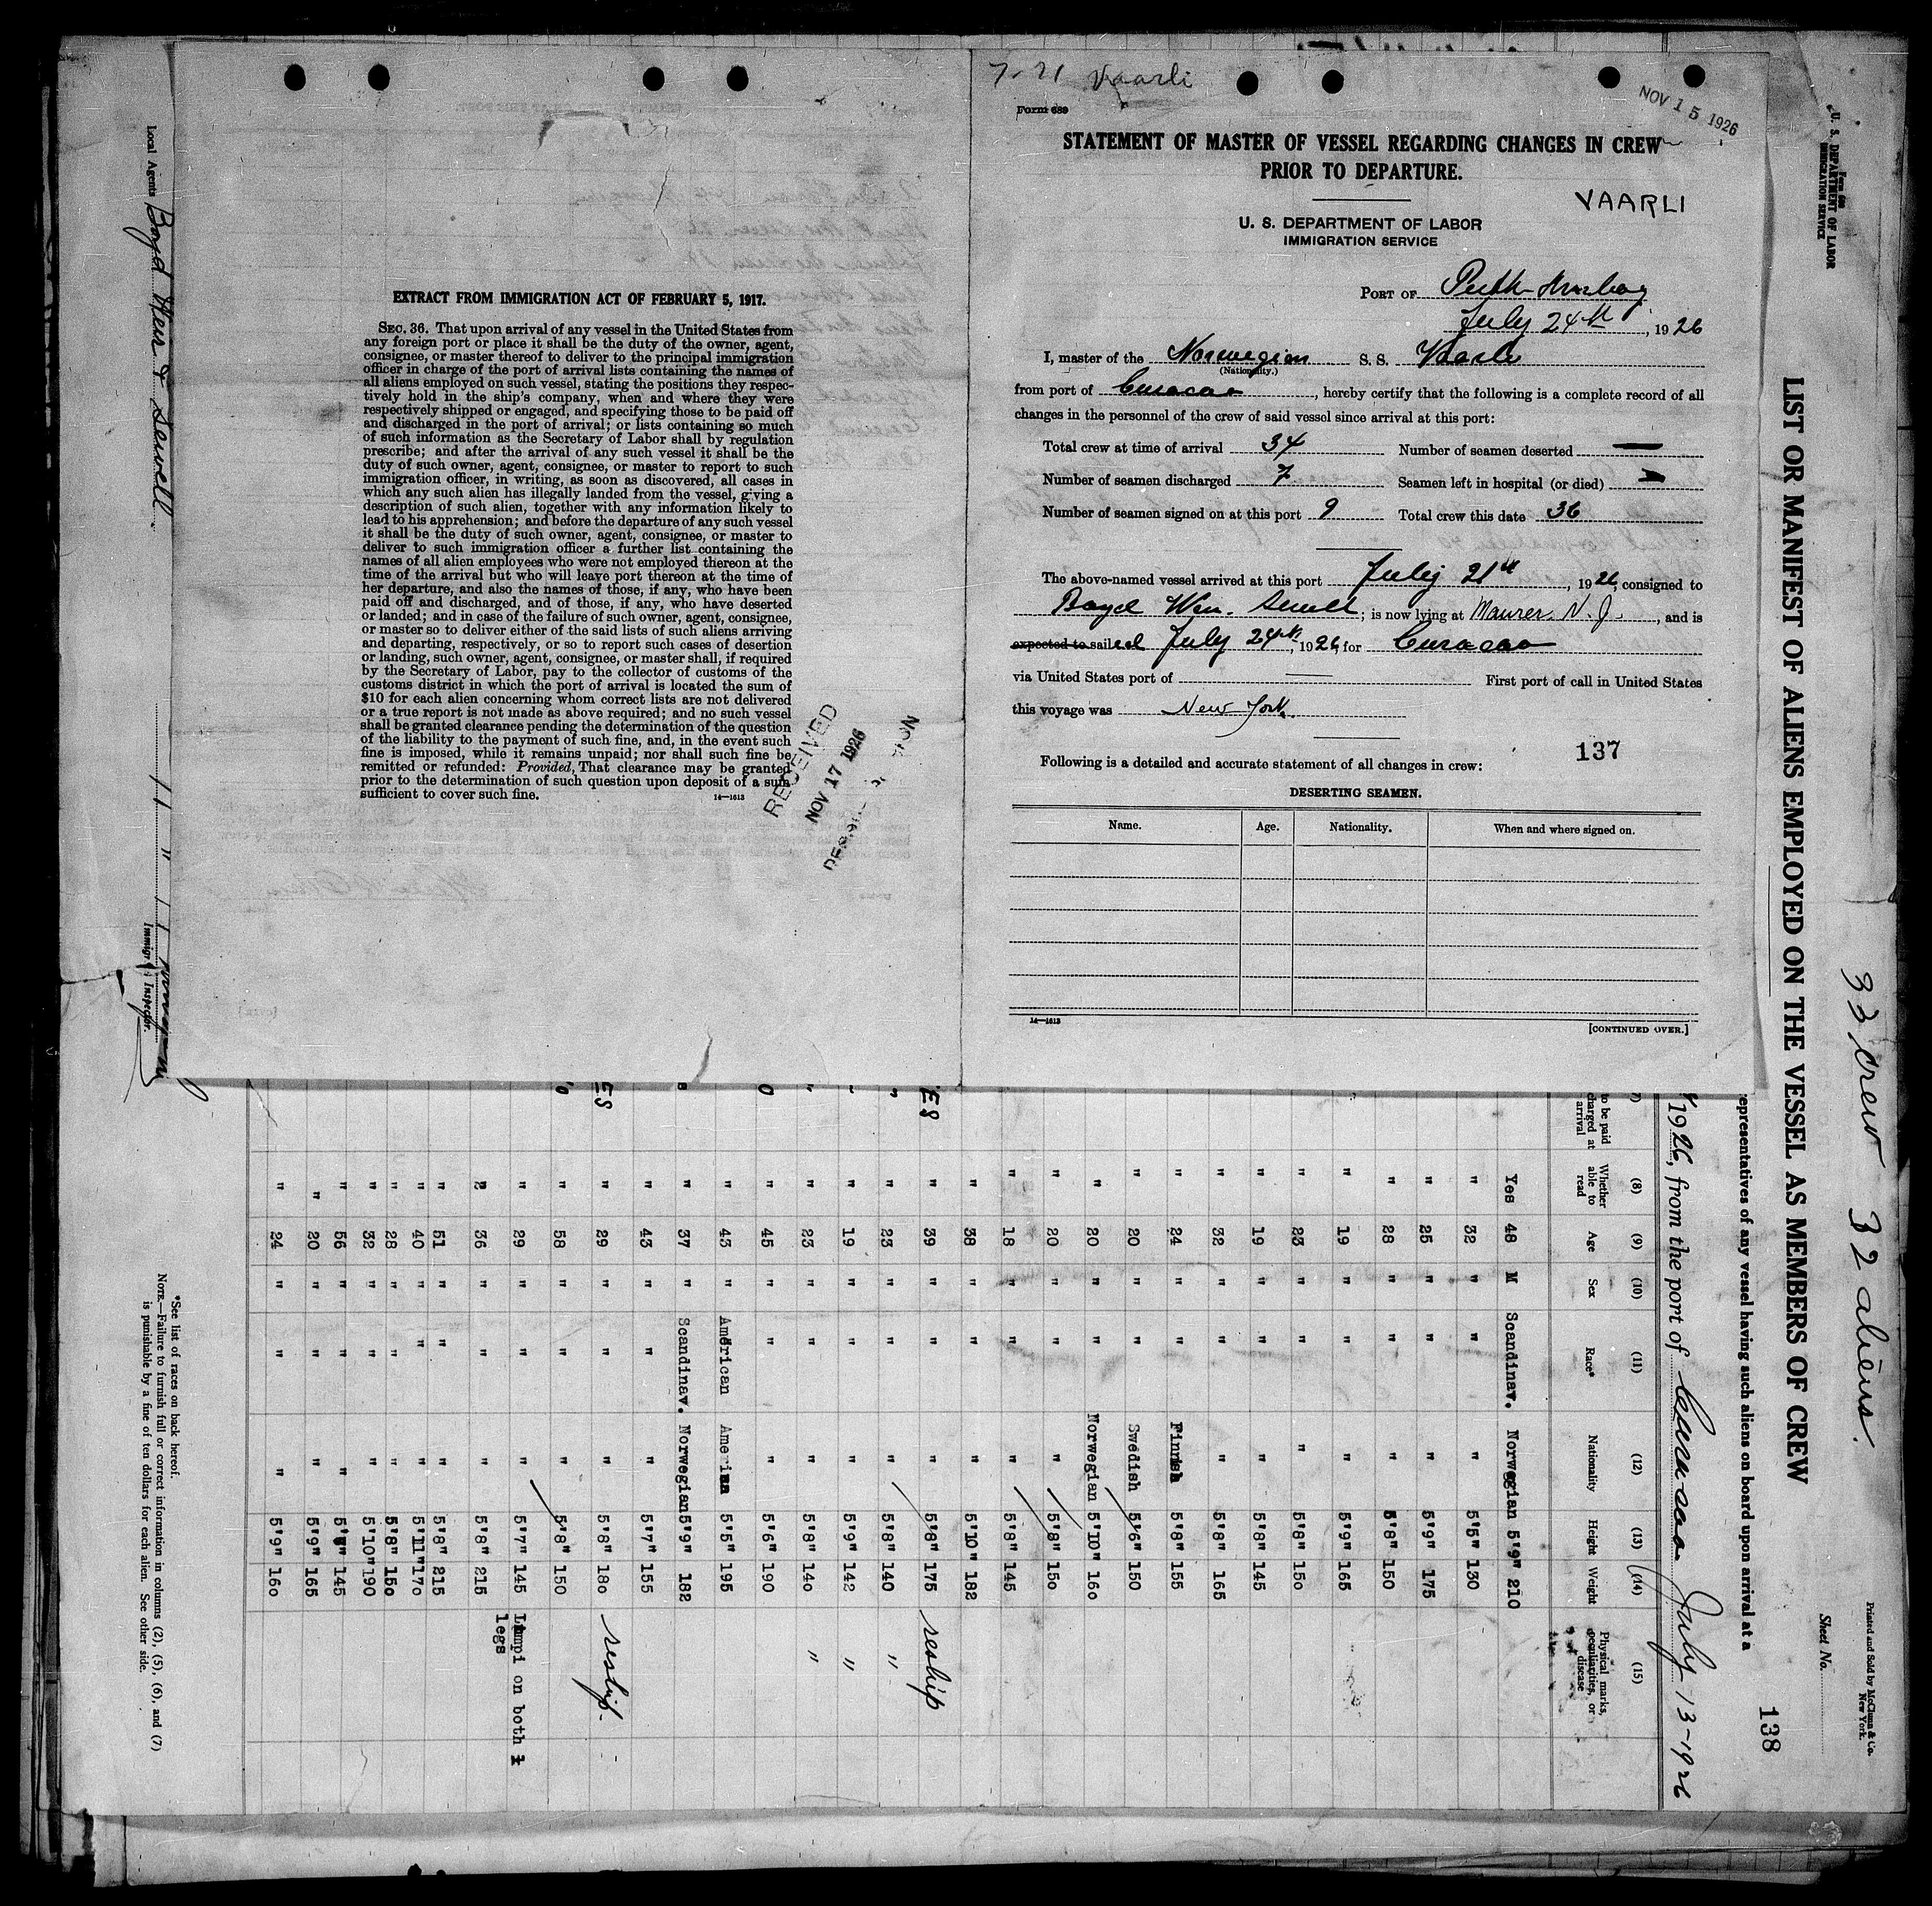 7-21 Vaarli
NOV 15 1926
Form 689
STATEMENT OF MASTER OF VESSEL REGARDING CHANGES IN CREW
PRIOR TO DEPARTURE.
VAARLI
U. S. DEPARTMENT OF LABOR
IMMIGRATION SERVICE
PORT OF Perth Amboy
July 24th, 1926
I, master of the Norwegian S. S. Vaarli
(Nationality.)
from port of Curacao, hereby certify that the following is a complete record of all
changes in the personnel of the crew of said vessel since arrival at this port:
Total crew at time of arrival 34 Number of seamen deserted —
Number of seamen discharged 7 Seamen left in hospital (or died)
Number of seamen signed on at this port 9 Total crew this date 36
The above-named vessel arrived at this port July 21st, 1926, consigned to
Boyd Weir Sewell; is now lying at Maurer. N. J., and is
expected to sailed July 24th, 1926 for Curacao
via United States port of — First port of call in United States
this voyage was New York.
137
Following is a detailed and accurate statement of all changes in crew:
DESERTING SEAMEN.
Name. Age. Nationality. When and where signed on.
14—1613
[CONTINUED OVER.]
EXTRACT FROM IMMIGRATION ACT OF FEBRUARY 5, 1917.
SEC. 36. That upon arrival of any vessel in the United States from
any foreign port or place it shall be the duty of the owner, agent,
consignee, or master thereof to deliver to the principal immigration
officer in charge of the port of arrival lists containing the names of
all aliens employed on such vessel, stating the positions they respec-
tively hold in the ship's company, when and where they were
respectively shipped or engaged, and specifying those to be paid off
and discharged in the port of arrival; or lists containing so much
of such information as the Secretary of Labor shall by regulation
prescribe; and after the arrival of any such vessel it shall be the
duty of such owner, agent, consignee, or master to report to such
immigration officer, in writing, as soon as discovered, all cases in
which any such alien has illegally landed from the vessel, giving a
description of such alien, together with any information likely to
lead to his apprehension; and before the departure of any such vessel
it shall be the duty of such owner, agent, consignee, or master to
deliver to such immigration officer a further list containing the
names of all alien employees who were not employed thereon at the
time of the arrival but who will leave port thereon at the time of
her departure, and also the names of those, if any, who have been
paid off and discharged, and of those, if any, who have deserted
or landed; and in case of the failure of such owner, agent, consignee,
or master so to deliver either of the said lists of such aliens arriving
and departing, respectively, or so to report such cases of desertion
or landing, such owner, agent, consignee, or master shall, if required
by the Secretary of Labor, pay to the collector of customs of the
customs district in which the port of arrival is located the sum of
$10 for each alien concerning whom correct lists are not delivered
or a true report is not made as above required; and no such vessel
shall be granted clearance pending the determination of the question
of the liability to the payment of such fine, and, in the event such
fine is imposed, while it remains unpaid; nor shall such fine be
remitted or refunded: Provided, That clearance may be granted
prior to the determination of such question upon deposit of a sum
sufficient to cover such fine.
14—1613
RECEIVED
NOV 17 1926
Form 689
U. S. DEPARTMENT OF LABOR
IMMIGRATION SERVICE
33 crew 32 aliens.
Printed and Sold by McClunn & Co.
New York.
Sheet No.
138
LIST OR MANIFEST OF ALIENS EMPLOYED ON THE VESSEL AS MEMBERS OF CREW
epresentatives of any vessel having such aliens on board upon arrival at a
1926, from the port of Curacao July 13-1926
(7) (8) (9) (10) (11) (12) (13) (14) (15)
to be paid charged at arrival Whether able to read Age Sex Race* Nationality Height Weight Physical marks, peculiarities, or disease
Yes 48 M Scandinav. Norwegian 5'9" 210
" 32 " " " 5'5" 130
" 25 " " " 5'9" 175
" 28 " " " 5'8" 150
" 19 " " " 5'9" 165
" 23 " " " 5'8" 150
" 19 " " " 5'8" 145
" 32 " " " 5'8" 165
" 24 " " Finnish 5'8" 155
" 20 " " Swedish 5'6" 150
" 20 " " Norwegian 5'10" 160
" 20 " " " 5'8" 150
" 18 " " " 5'8" 145
" 38 " " " 5'10" 182
ES " 39 " " " 5'8" 175 reship
" " 23 " " " 5'8" 140 "
" " 19 " " " 5'9" 142 "
" " 23 " " " 5'8" 140 "
" 45 " " " 5'6" 190
" 43 " American American 5'5" 195
" 37 " Scandinav. Norwegian 5'9" 182
" 43 " " " 5'7" 155
ES " 29 " " " 5'8" 180 reship
" 58 " " " 5'8" 150
" 29 " " " 5'7" 145 Limpi on both
legs
" 36 " " " 5'8" 215
" 51 " " " 5'8" 215
" 40 " " " 5'11" 170
" 28 " " " 5'8" 150
" 32 " " " 5'10" 190
" 56 " " " 145
" 20 " " " 5'9" 165
" 24 " " " 5'9" 160
*See list of races on back hereof.
NOTE.—Failure to furnish full or correct information in columns (2), (5), (6), and (7)
is punishable by a fine of ten dollars for each alien. See other side.
Local Agents Boyd Weir & Sewell
Immigrant Inspector.